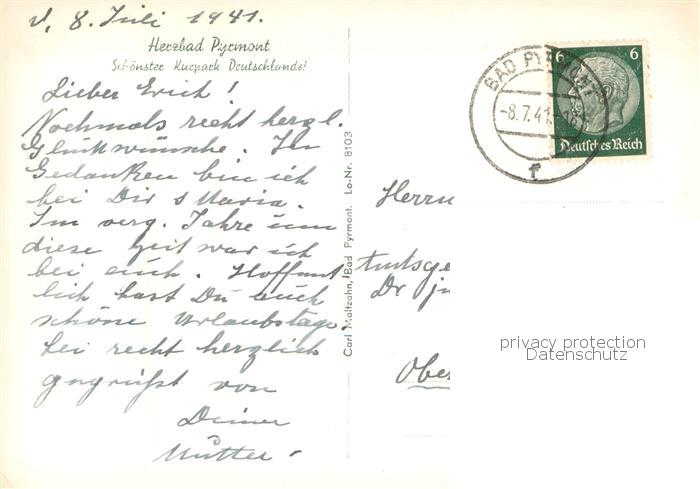 d. 8. Juli 1941.
Herzbad Pyrmont
Schönster Kurpark Deutschlands!
Lieber Erich!
Nochmals recht herzl.
Glückwünsche. In
Gedanken bin ich
bei Dir & Maria.
Im verg. Jahre um
diese Zeit war ich
bei euch. Hoffent
lich hast Du auch
schöne Urlaubstage.
Sei recht herzlich
gegrüßt von
Deiner
Mutter.
Carl Maltzahn, Bad Pyrmont. Lo-Nr. 8103
BAD PYRMONT
-8.7.41
f
6 6
Deutsches Reich
Herrn
Amtsge
Dr ju
Ober
privacy protection
Datenschutz